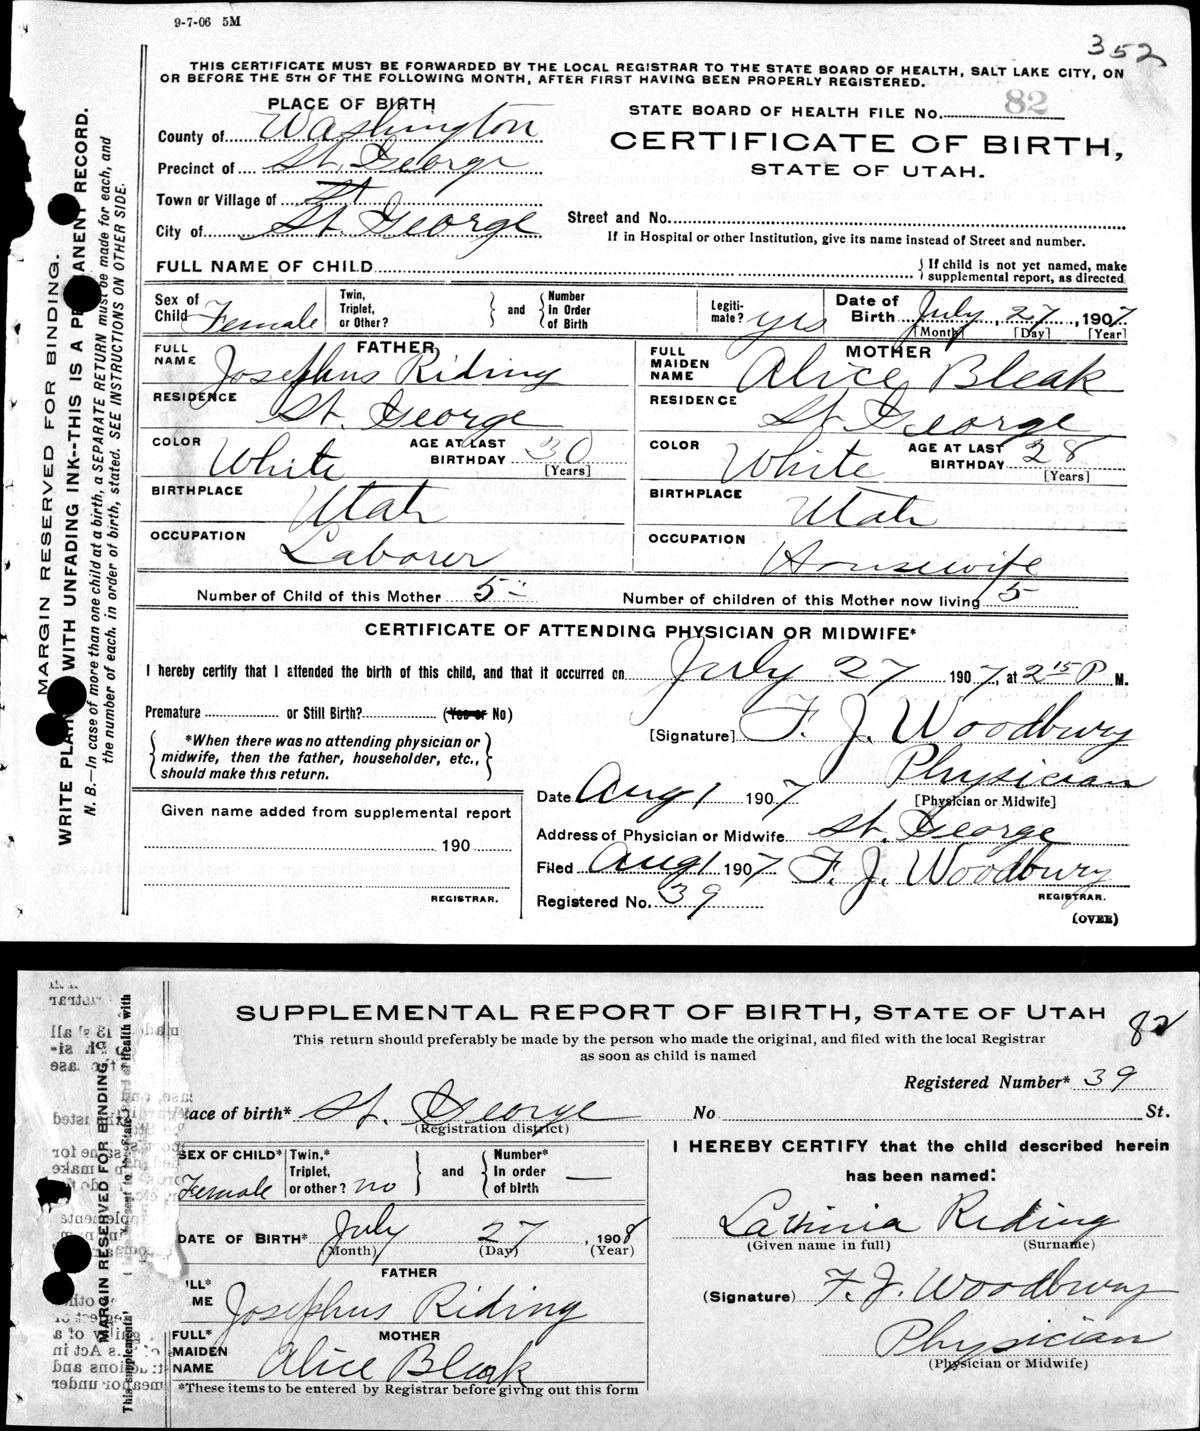 9-7-06 5M
352
THIS CERTIFICATE MUST BE FORWARDED BY THE LOCAL REGISTRAR TO THE STATE BOARD OF HEALTH, SALT LAKE CITY, ON
OR BEFORE THE 5TH OF THE FOLLOWING MONTH, AFTER FIRST HAVING BEEN PROPERLY REGISTERED.
PLACE OF BIRTH
STATE BOARD OF HEALTH FILE No. 82
County of Washington
CERTIFICATE OF BIRTH,
Precinct of St. George
STATE OF UTAH.
Town or Village of St
City of St. George
Street and No.
If in Hospital or other Institution, give its name instead of Street and number.
FULL NAME OF CHILD
{ If child is not yet named, make supplemental report, as directed
Sex of Child Female
Twin, Triplet, or Other? } and { Number In Order of Birth
Legiti-mate? yes
Date of Birth July, 27, 1907
[Month] [Day] [Year]
FATHER
FULL NAME Josephus Riding
RESIDENCE St. George
COLOR White AGE AT LAST BIRTHDAY 30 [Years]
BIRTHPLACE Utah
OCCUPATION Laborer
MOTHER
FULL MAIDEN NAME Alice Bleak
RESIDENCE St George
COLOR White AGE AT LAST BIRTHDAY 28 [Years]
BIRTHPLACE Utah
OCCUPATION Housewife
Number of Child of this Mother 5 Number of children of this Mother now living 5
CERTIFICATE OF ATTENDING PHYSICIAN OR MIDWIFE*
I hereby certify that I attended the birth of this child, and that it occurred on July 27 1907, at 2 15 P M.
Premature or Still Birth? (Yes or No)
[Signature] F. J. Woodbury
*When there was no attending physician or
midwife, then the father, householder, etc.,
should make this return.
Physician
[Physician or Midwife]
Date Aug 1 1907
Given name added from supplemental report
190
REGISTRAR.
Address of Physician or Midwife St. George
Filed Aug 1 1907 F. J. Woodbury
REGISTRAR.
Registered No. 39
(OVER)
MARGIN RESERVED FOR BINDING.
WRITE PLAIN WITH UNFADING INK--THIS IS A PERMANENT RECORD.
N. B.—In case of more than one child at a birth, a SEPARATE RETURN must be made for each, and
the number of each, in order of birth, stated. SEE INSTRUCTIONS ON OTHER SIDE.
SUPPLEMENTAL REPORT OF BIRTH, STATE OF UTAH
82
This return should preferably be made by the person who made the original, and filed with the local Registrar
as soon as child is named
Registered Number* 39
ace of birth* St. George No St.
(Registration district)
SEX OF CHILD* Female
Twin,* Triplet, or other? no } and { Number* In order of birth —
DATE OF BIRTH* July 27, 1908
(Month) (Day) (Year)
FATHER
Josephus Riding
MOTHER
FULL* MAIDEN NAME Alice Bleak
*These items to be entered by Registrar before giving out this form
I HEREBY CERTIFY that the child described herein
has been named:
Lavinia Riding
(Given name in full) (Surname)
(Signature) F. J. Woodbury
Physician
(Physician or Midwife)
MARGIN RESERVED FOR BINDING.